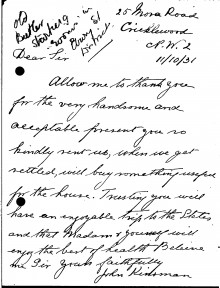 25 Mora Road
Cricklewood
N.W. 2
11/10/31
Old
Butler
in
Bow St
District
Dear Sir
Allow me to thank you
for the very handsome and
acceptable present you so
kindly sent us, when we get
settled, will buy something useful
for the house. Trusting you will
have an enjoyable trip to the States
and that Madam & yourself will
enjoy the best of health Believe
me Sir yours faithfully
John Kinsman